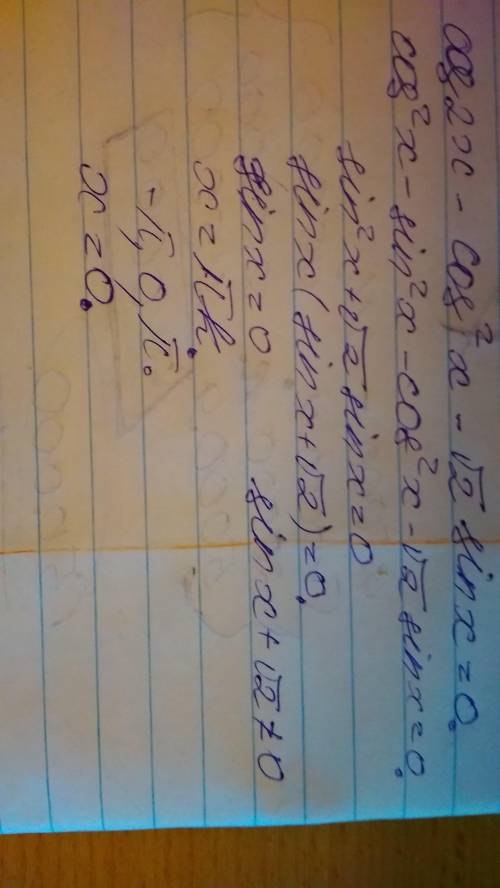 cos 2x - cos²x - √2 sin x = 0.
cos²x - sin²x - cos²x - √2 sin x = 0.
sin²x + √2 sin x = 0
sin x ( sin x + √2 ) = 0.
sin x = 0 sin x + √2 ≠ 0
x = πk.
-π, 0, π.
x = 0.